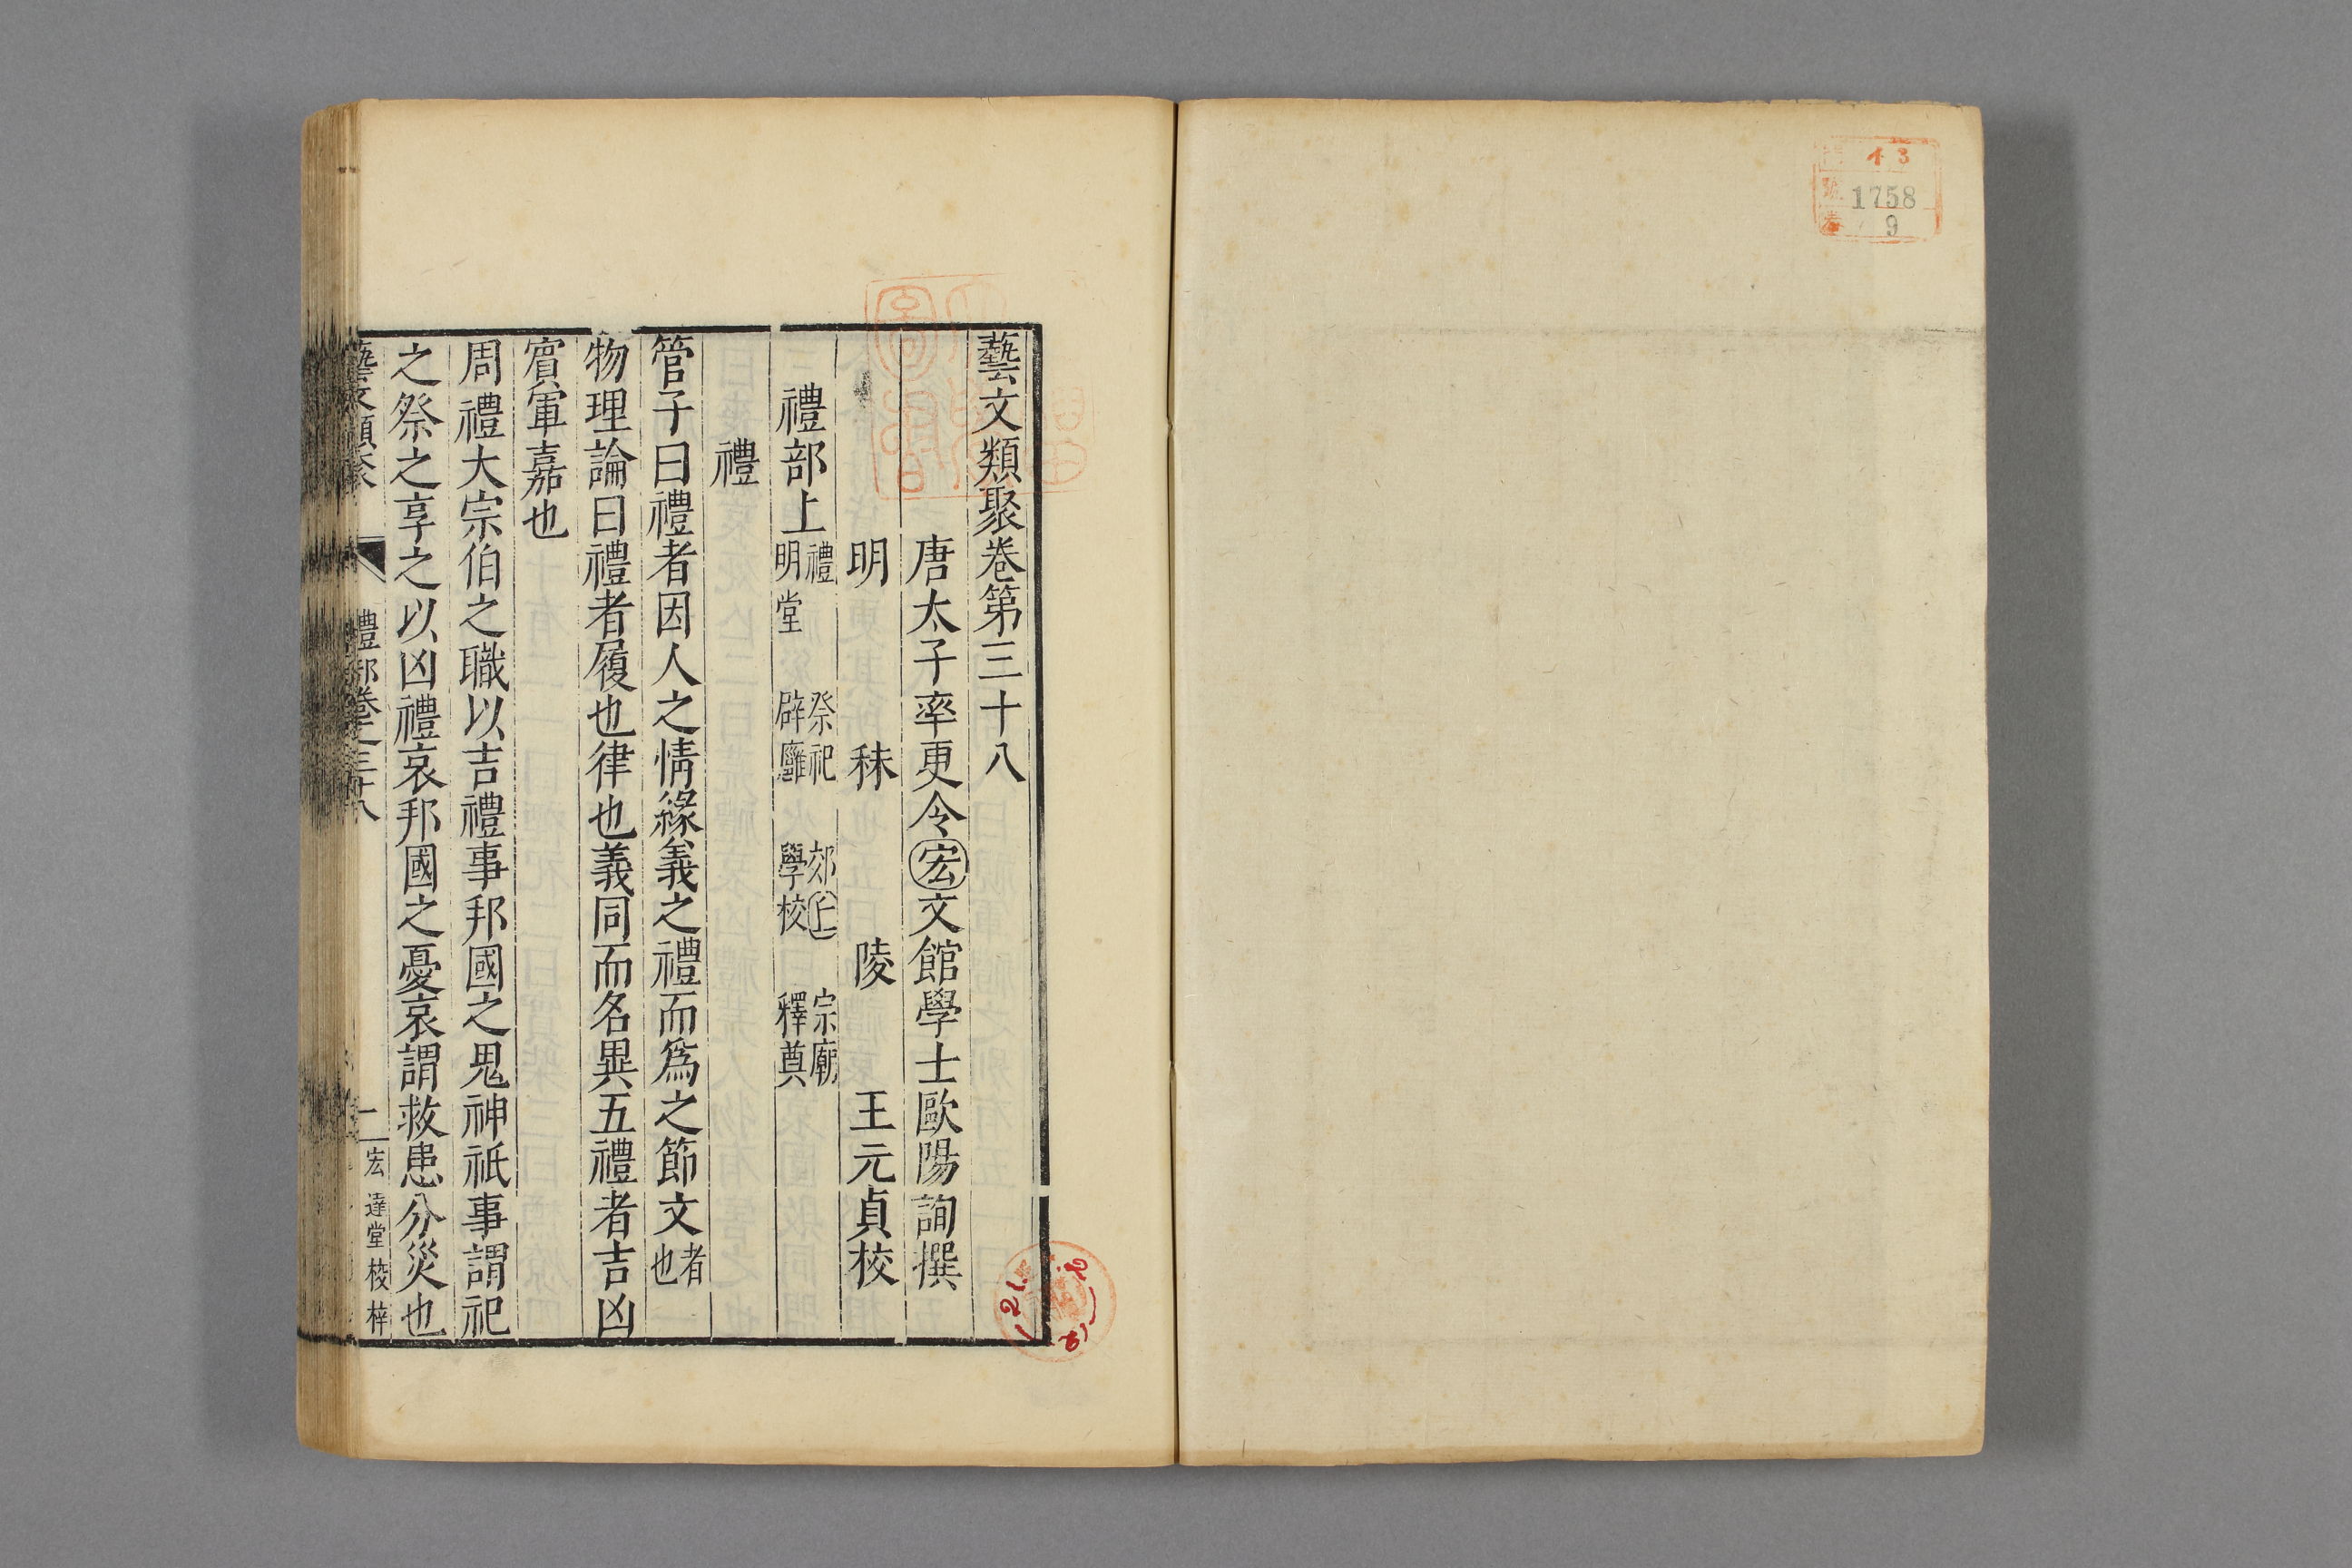 1758
9
藝文類聚卷第三十八
唐太子率更令宏文館學士歐陽詢撰
明 秣 陵 王元貞校
禮部上 禮 祭祀 郊丘 宗廟
明堂 辟廱 學校 釋奠
禮
管子曰禮者因人之情緣義之禮而爲之節文者也
物理論曰禮者履也律也義同而名異五禮者吉凶
賓軍嘉也
周禮大宗伯之職以吉禮事邦國之鬼神祇事謂祀
之祭之享之以凶禮哀邦國之憂哀謂救患分災也
藝文類聚 禮部卷之三十八 一 宏達堂校梓